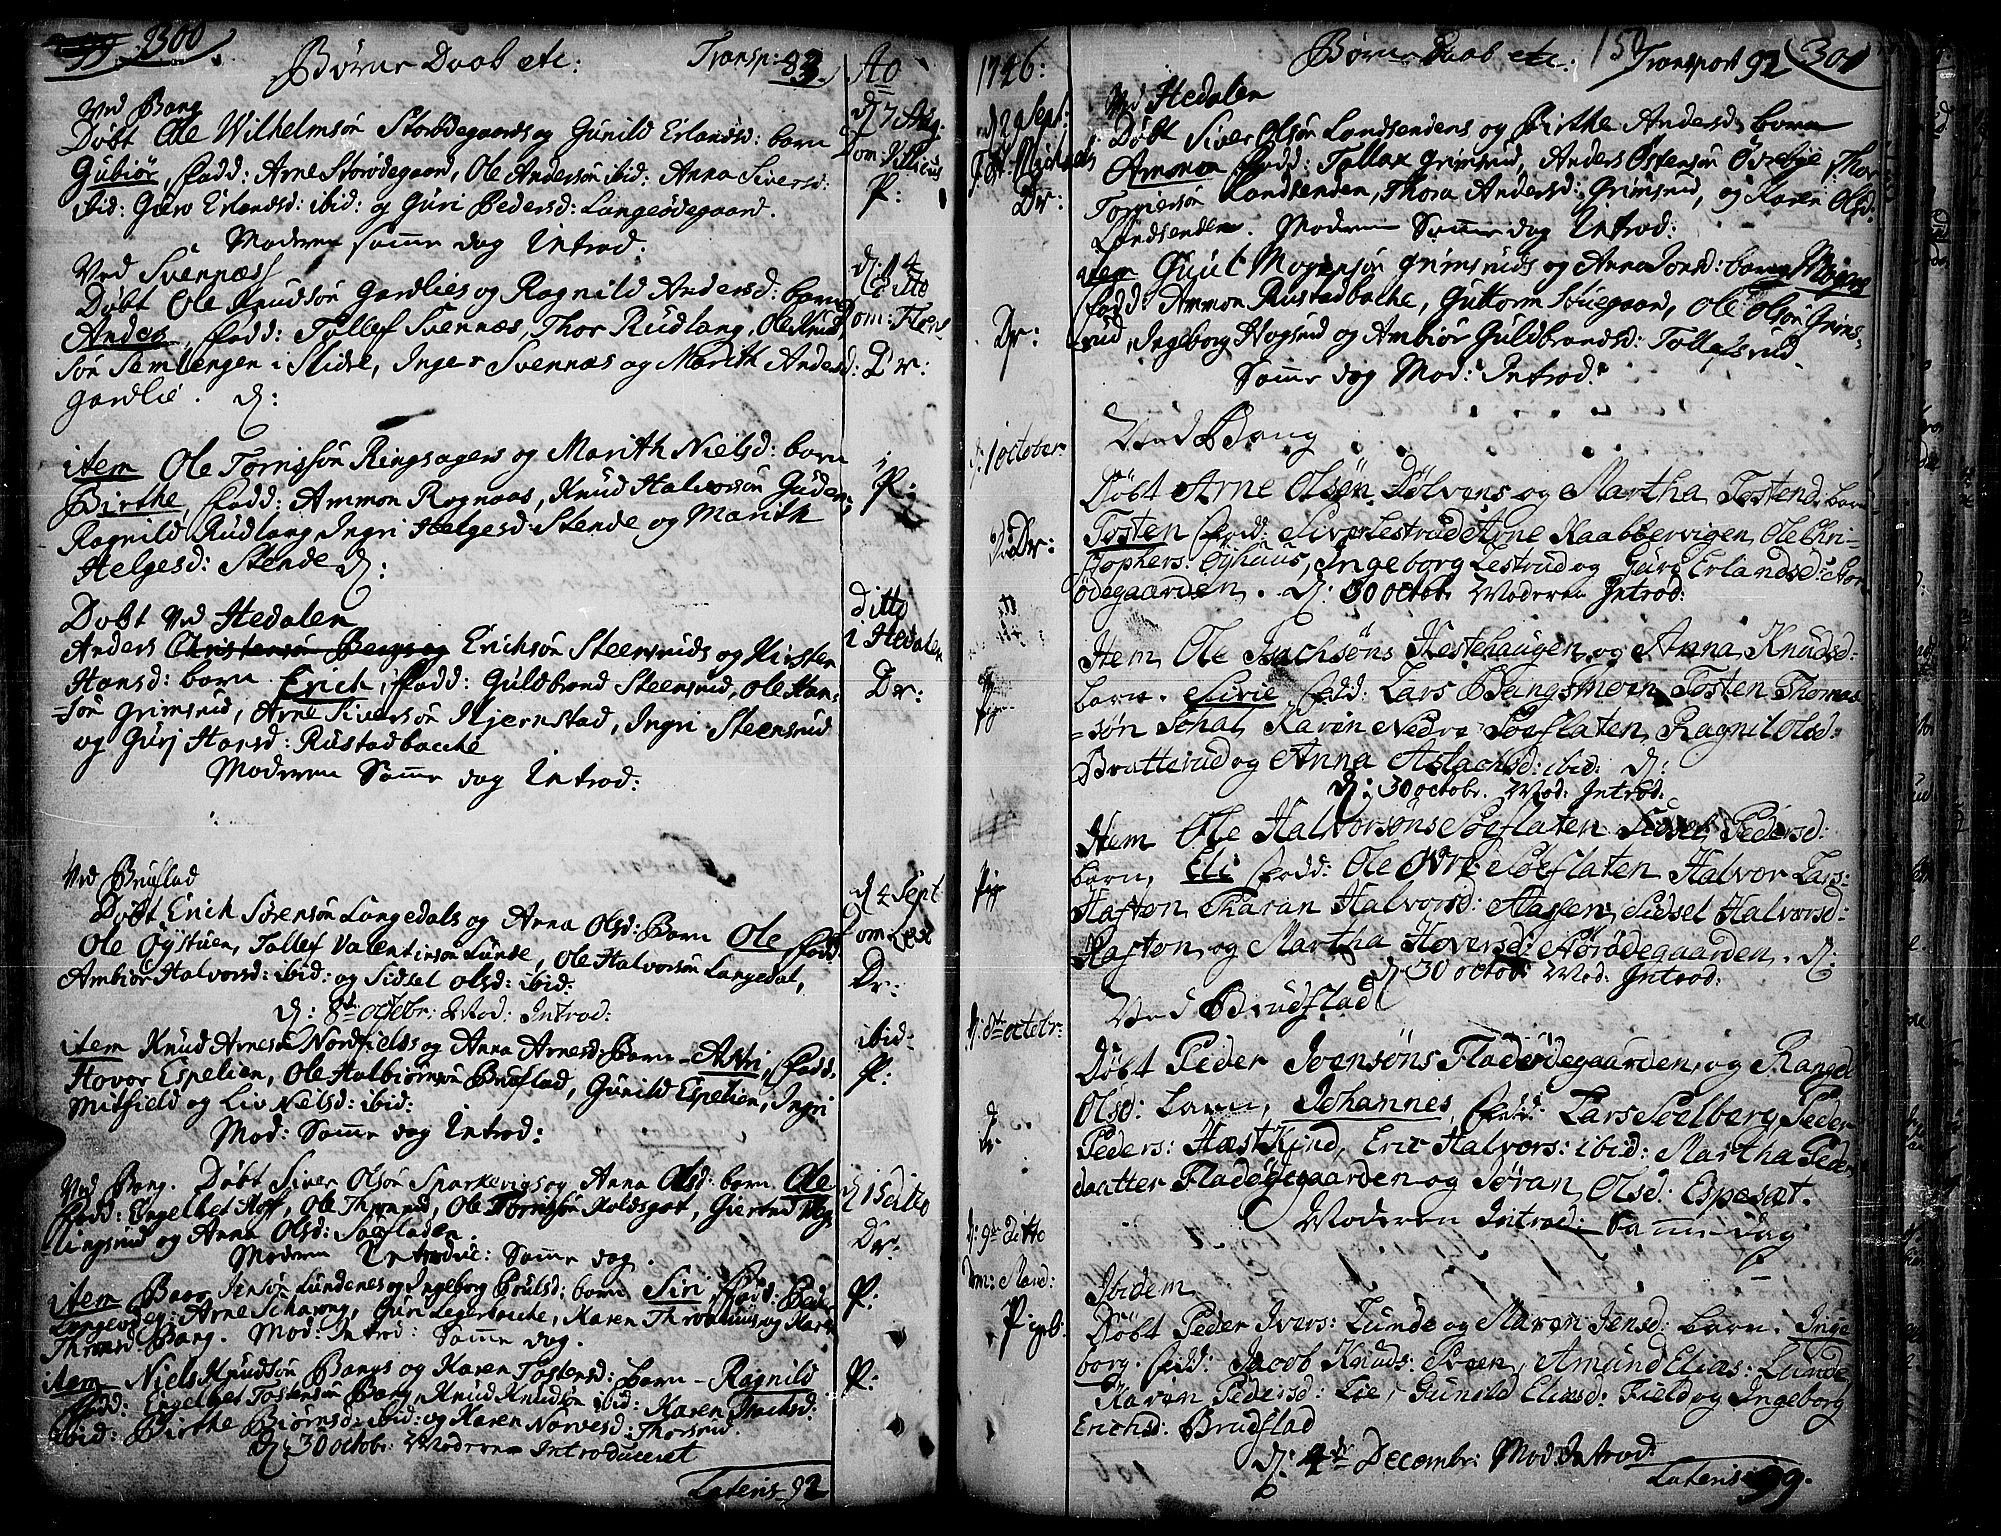 300
Børne Daab etc: Transp: 83
Ao
Ved Bang
Døbt Ole Wilhelmsøn Storødegaards og Gunild Erlandsd: barn
Gubiør, Fadd: Arne Storødegaard, Ole Andersøn ibid: Anna Siversd:
ibid: Guro Erlandsd: ibid: og Guri Pedersd: Langeødegaard.
Moderen samme dag Introd:
d: 7 Aug:
Dom: Villicus
P:
Ved Svennæs
Døbt Ole Knudsøn Gardlies og Ragnild Andersd: barn
Anders, Fadd: Tollef Svennæs, Thor Rudlang, Ole Knud
søn Semlengen i Slidre, Inger Svennæs og Marith Andersd:
Gardlie. d:
d: 14
ditto
Dom: Flens
Dr:
item Ole Tornissøn Ringsagers og Marith Nielsd: barn
Birthe, Fadd: Ammon Rognaas, Knud Halvorsøn
Ragnild Rudlang, Ingri Helgesd: Stende og Marith
Helgesd: Stende d:
P:
Døbt Ved Hedalen
Anders Erichsøn Steensruds og Kirsten
Hansd: barn Erich, Fadd: Guldbrand Steensrud, Ole Han-
søn Grimsrud, Arne Siversøn Hjernstad, Ingri Steensrud
og Gurj Hansd: Rustadbacche
Moderen Samme dag Introd:
ditto
i Hedalen
Dr:
Ved Bruflad
Døbt Erich Sørensøn Langedals og Anna Olsd: Barn Ole Fadd:
Ole Øystuen, Tollef Valentinsøn Lunde, Ole Halvorsøn Langedal,
Ambiør Halvorsd: ibid: og Sidsel Olsd: ibid:
d: 8de Octobr: Mod: Introd:
d: 4 Sept
Dr:
item Knud Arnesøn Nordfields og Anna Arnesd: Barn Astri, Fadd:
Hovor Espelien, Ole Halbiørnsøn Bruflad, Gunild Espelien, Ingri
Mitfield og Liv Nielsd: ibid:
Mod: Samme dag Introd:
ibid:
P:
Ved Bang. Døbt Siver Olsøn Sparkevigs og Anna Olsd: barn Ole
Fadd: Engelbet Hoff, Ole Thronrud, Ole Tornissøn Koldsgot, Giertrud
lingsrud og Anna Olsd: Søeflaten.
Moderen Introduc: Samme dag.
d: 15 ditto
Dr:
item Baar Jensøn Lundenes og Ingeborg Poulsd: barn Siri Fadd: Peder
Langeødeg: Arne Scharong, Guri Legerbacche, Karen Thronhuus og Karen
Thronsd: Bang. Mod: Introd: Samme dag.
P:
item Niels Knudsøn Bangs og Karen Tostensd: Barn Ragnild
Fadd: Engelbet Tostensøn Bang, Knud Knudsøn ibid: Karen
ibid: Birthe Biørnsd: ibid: og Karen Norvesd: Thorsrud.
d: 30 octobr: Moderen Introduceret
P:
Lateris 92
1746:
Børne Daab etc: 150 Transport 92 301
d: 29 Sept:
F: St: Michaels
Dr:
Ved Hedalen
Døbt Siver Olsøn Landsendens og Birthe Andersd: barn
Ammon Fadd: Tollax Grimsrud, Anders Østensøn Øvrebye Thor
Torgiersøn Landsenden, Thora Andersd: Grimsrud, og Karen Olsd:
Landsenden. Moderen Samme dag Introd:
item Guut Mogensøn Grimsruds og Anna Jonsd: barn Mogens
Fadd: Ammon Rustadbacche, Guttorm Støuegaard, Ole Olsøn Grims-
rud, Ingeborg Hogsrud og Ambiør Guldbrandsd: Tollefsrud
Samme dag Mod: Introd:
Dr:
Ved Bang
d: 1 october
Døbt Arne Olsøn Dølvens og Martha Tostend: barn
Tosten Fadd: Siver Lestrud Arne Kaabbervigen, Ole Chri-
stophers: Øghuus, Ingeborg Lestrud og Guro Erlandsd: Stor
ødegaarden. d: 30 octob: Moderen Introd:
Dr:
Item Ole Isachsøns Hestehaugen og Anna Knudsd:
barn. Sirie Fadd: Lars Bangsmoen Tosten Thomas
søn Johal, Karen Nedre Søeflaten Ragnil Olsd:
Bratterud og Anna Aslachsd: ibid: d:
d: 30 octobr. Mod: Introd:
Pige
Item Ole Halvorsøns Søeflaten Sidsel Pedersd:
barn, Eli Fadd: Ole Øvre Søeflaten Halvor Lars:
Haften Karan Halvorsd: Haften Sidsel Halvorsd:
Haften og Martha Hoversd: Nørødegaarden. d:
d: 30 octob: Mod: Introd:
Pige
Ved Brudflad
d: 8de octobr:
Døbt Peder Ivensøns Fladødegaarden, og Rangel
Olsd: barn, Johannes, Fadd: Lars Seelberg Peder
Peders: Hæstkind, Eric Halvors: ibid: Martha Peders
daatter Fladødegaarden og Søran Olsd: Espesæt.
Moderen Introd: samme dag
d: 9de ditto
P: geb:
Ibidem
Døbt Peder Ivers: Lunde og Maren Jensd: barn. Inge
borg. Fadd: Jacob Knuds: Proen, Amund Elias: Lunde,
Karen Pedersd: Lie, Gunild Eliasd: Field og Ingeborg
Erichsd: Brudflad
d: 4de Decembr: Mod: Introd:
Lateris 99.